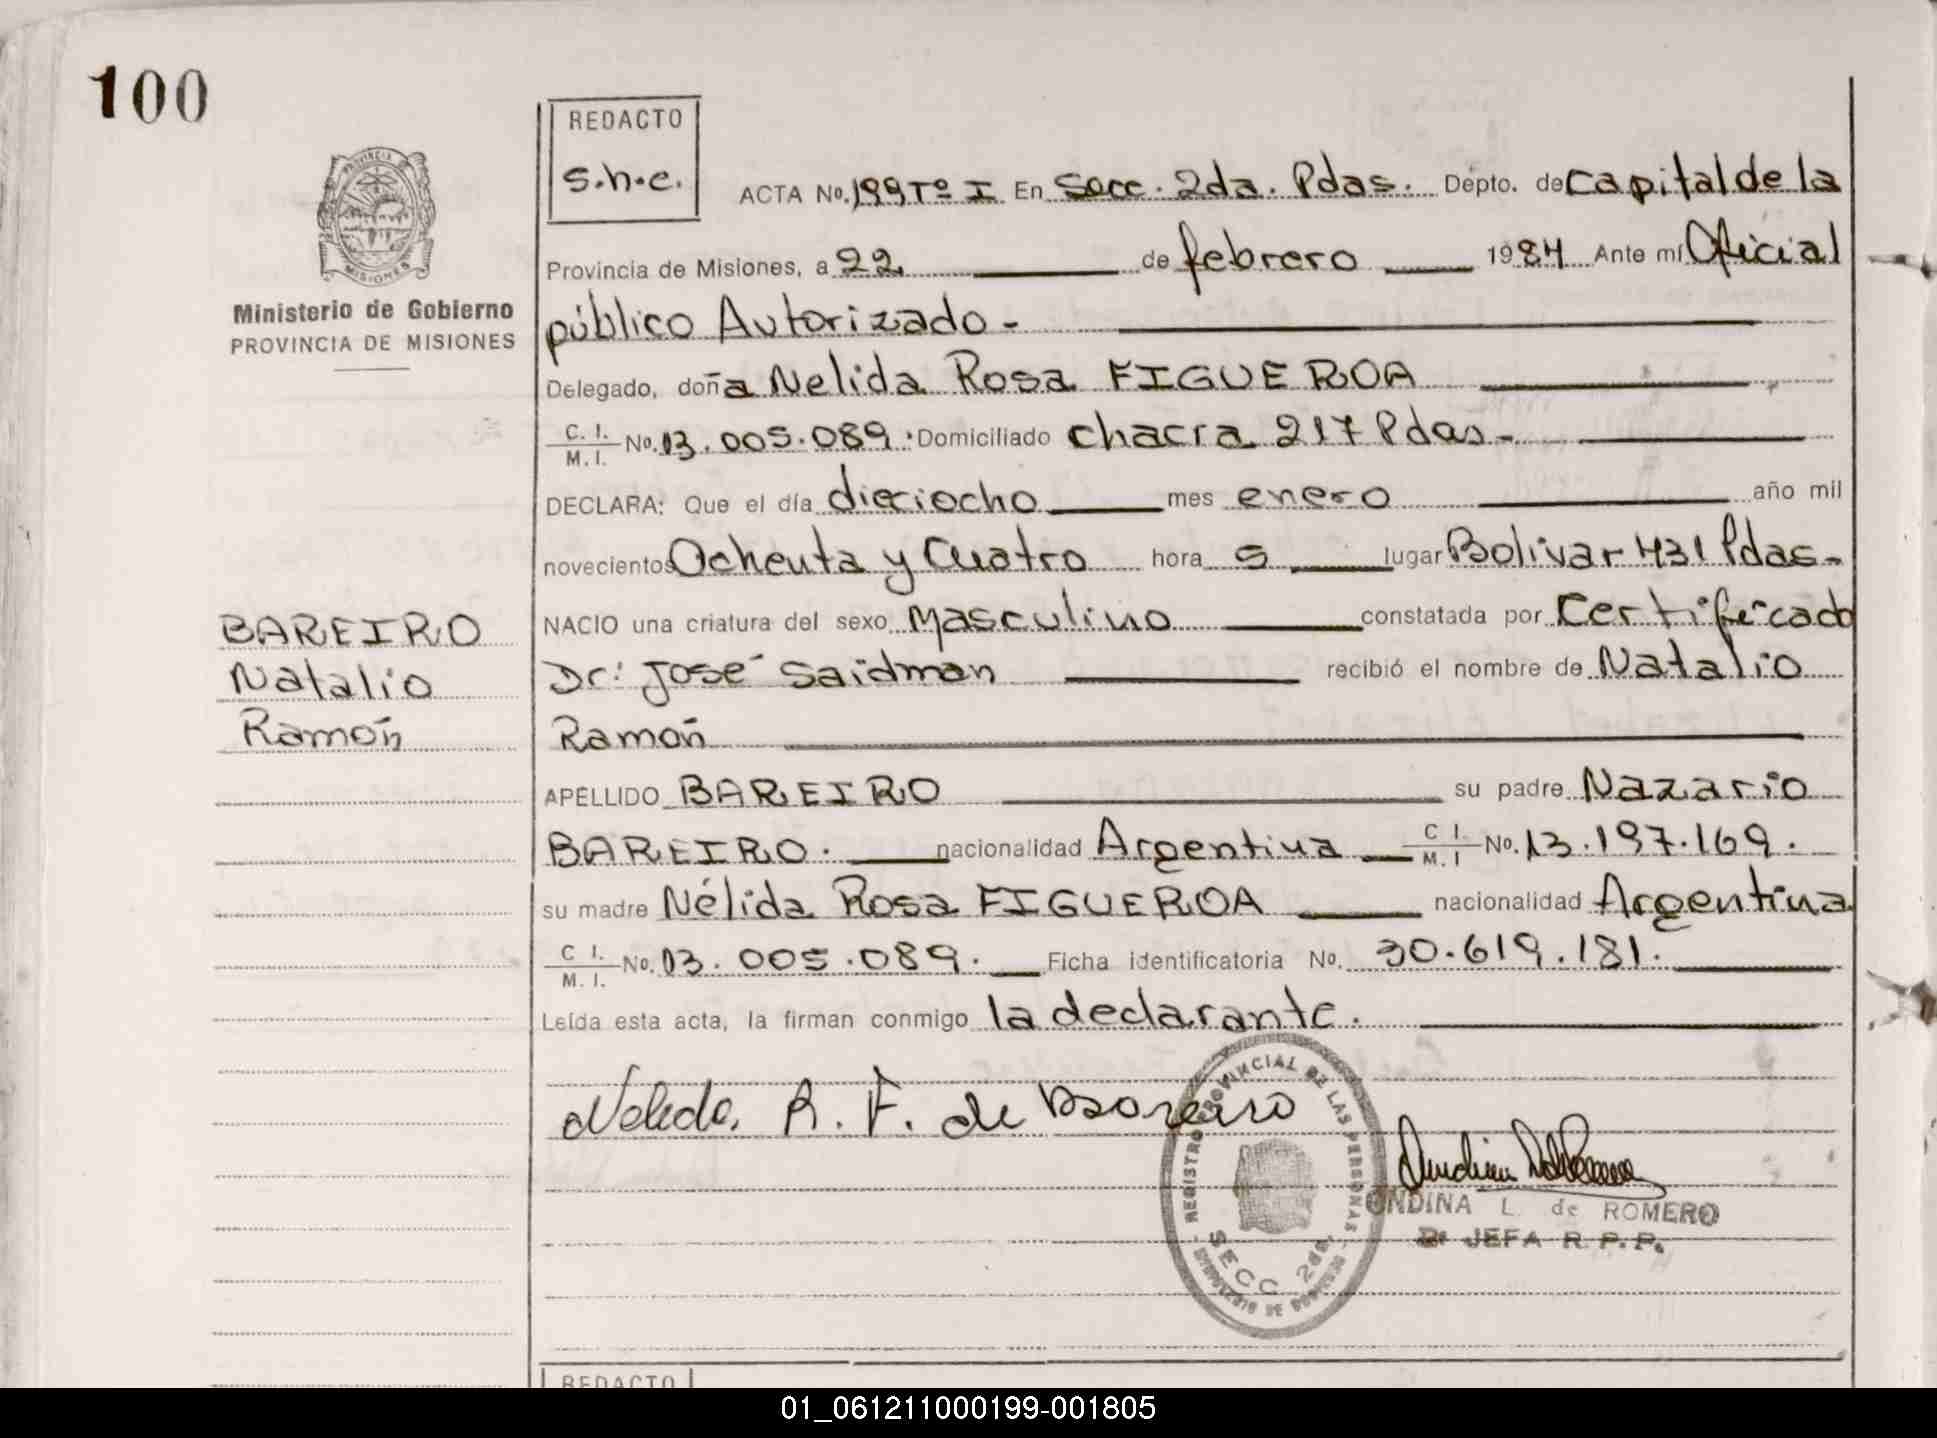 100
REDACTO
s.h.e.
ACTA No. 199 Tº I En Secc. 2da. Pdas. Depto. de Capital de la
PROVINCIA DE MISIONES
Provincia de Misiones, a 22 de febrero 1984 Ante mí Oficial
Ministerio de Gobierno
PROVINCIA DE MISIONES
público Autorizado -
Delegado, doña Nelida Rosa FIGUEROA
C. I. M. I. No. 13.005.089. Domiciliado chacra 217 Pdas -
DECLARA: Que el día dieciocho mes enero año mil
novecientos Ochenta y Cuatro hora 5 lugar Bolivar 431 Pdas -
NACIO una criatura del sexo Masculino constatada por Certificado
BAREIRO
Natalio
Ramón
Dr: José Saidman recibió el nombre de Natalio
Ramón
APELLIDO BAREIRO su padre Nazario
BAREIRO. nacionalidad Argentina C I. M. I No. 13.197.169.
su madre Nélida Rosa FIGUEROA nacionalidad Argentina
C I. M. I. No. 13.005.089. Ficha identificatoria No. 30.619.181.
Leída esta acta, la firman conmigo la declarante.
Nelida. R. F. de Bareiro
REGISTRO PROVINCIAL DE LAS PERSONAS
SECC 2da.
ONDINA L. de ROMERO
JEFA R. P. P.
REDACTO
01_061211000199-001805